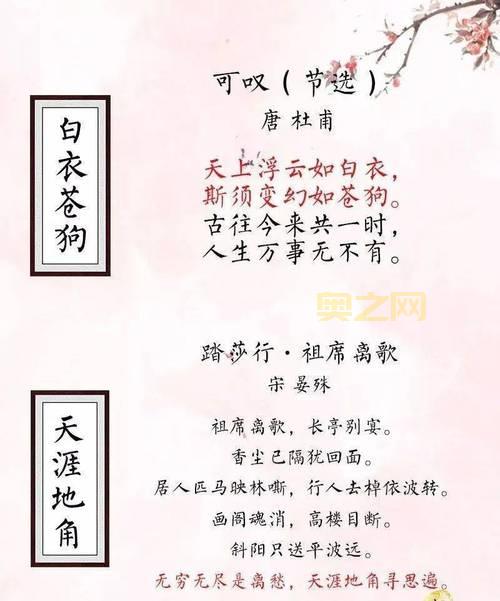 可叹（节选）
唐 杜甫
白衣苍狗
天上浮云如白衣，
斯须变幻如苍狗。
古往今来共一时，
人生万事无不有。
奥之网
踏莎行·祖席离歌
宋 晏殊
天涯地角
祖席离歌，长亭别宴。
香尘已隔犹回面。
居人匹马映林嘶，行人去棹依波转。
画阁魂消，高楼目断。
斜阳只送平波远。
无穷无尽是离愁，天涯地角寻思遍。